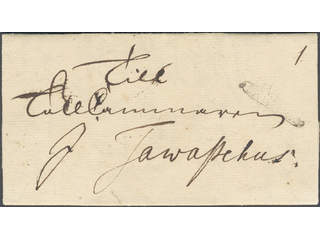 1
Till
TullCammaren
J Tawastehus.